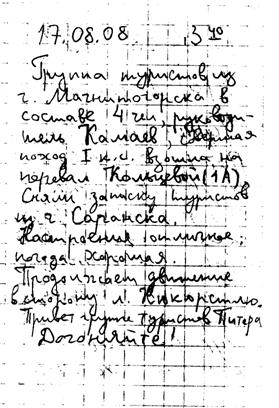 17.08.08.
Группа туристов из
г. Магнитогорска в
составе 4 чел, руководи-
тель Камаев, совершая
поход I к.с. взошла на
перевал Кольцевой (1А)
Сняли записку туристов
из г. Саранска.
Настроение отличное,
погода хорошая.
Продолжаем движение
в сторону л.
Привет группе туристов Питера
Догоняйте!